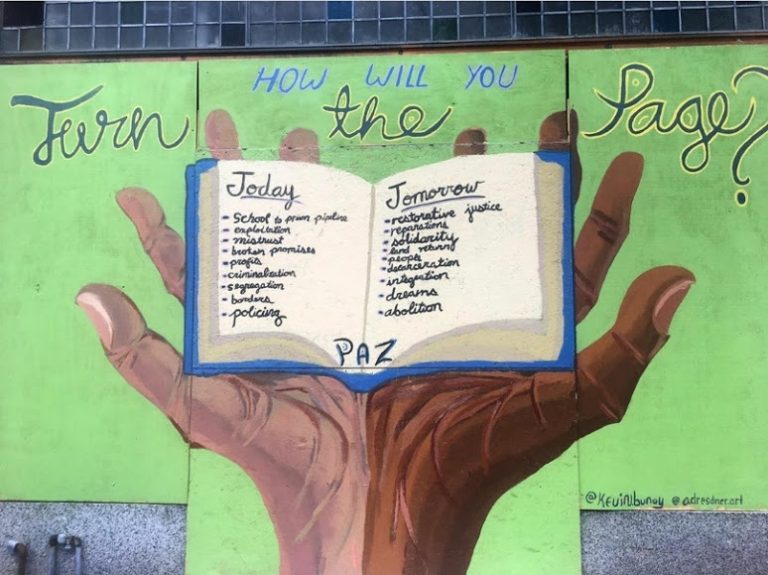 HOW WILL YOU
Turn the Page?
Today
- School to prison pipeline
- exploitation
- mistrust
- broken promises
- profits
- criminalization
- segregation
- borders
- policing
Tomorrow
- restorative justice
- reparations
- solidarity
- land return
- people
- decarceration
- integration
- dreams
- abolition
PAZ
@KEVIN.bunoy @adresdner.art